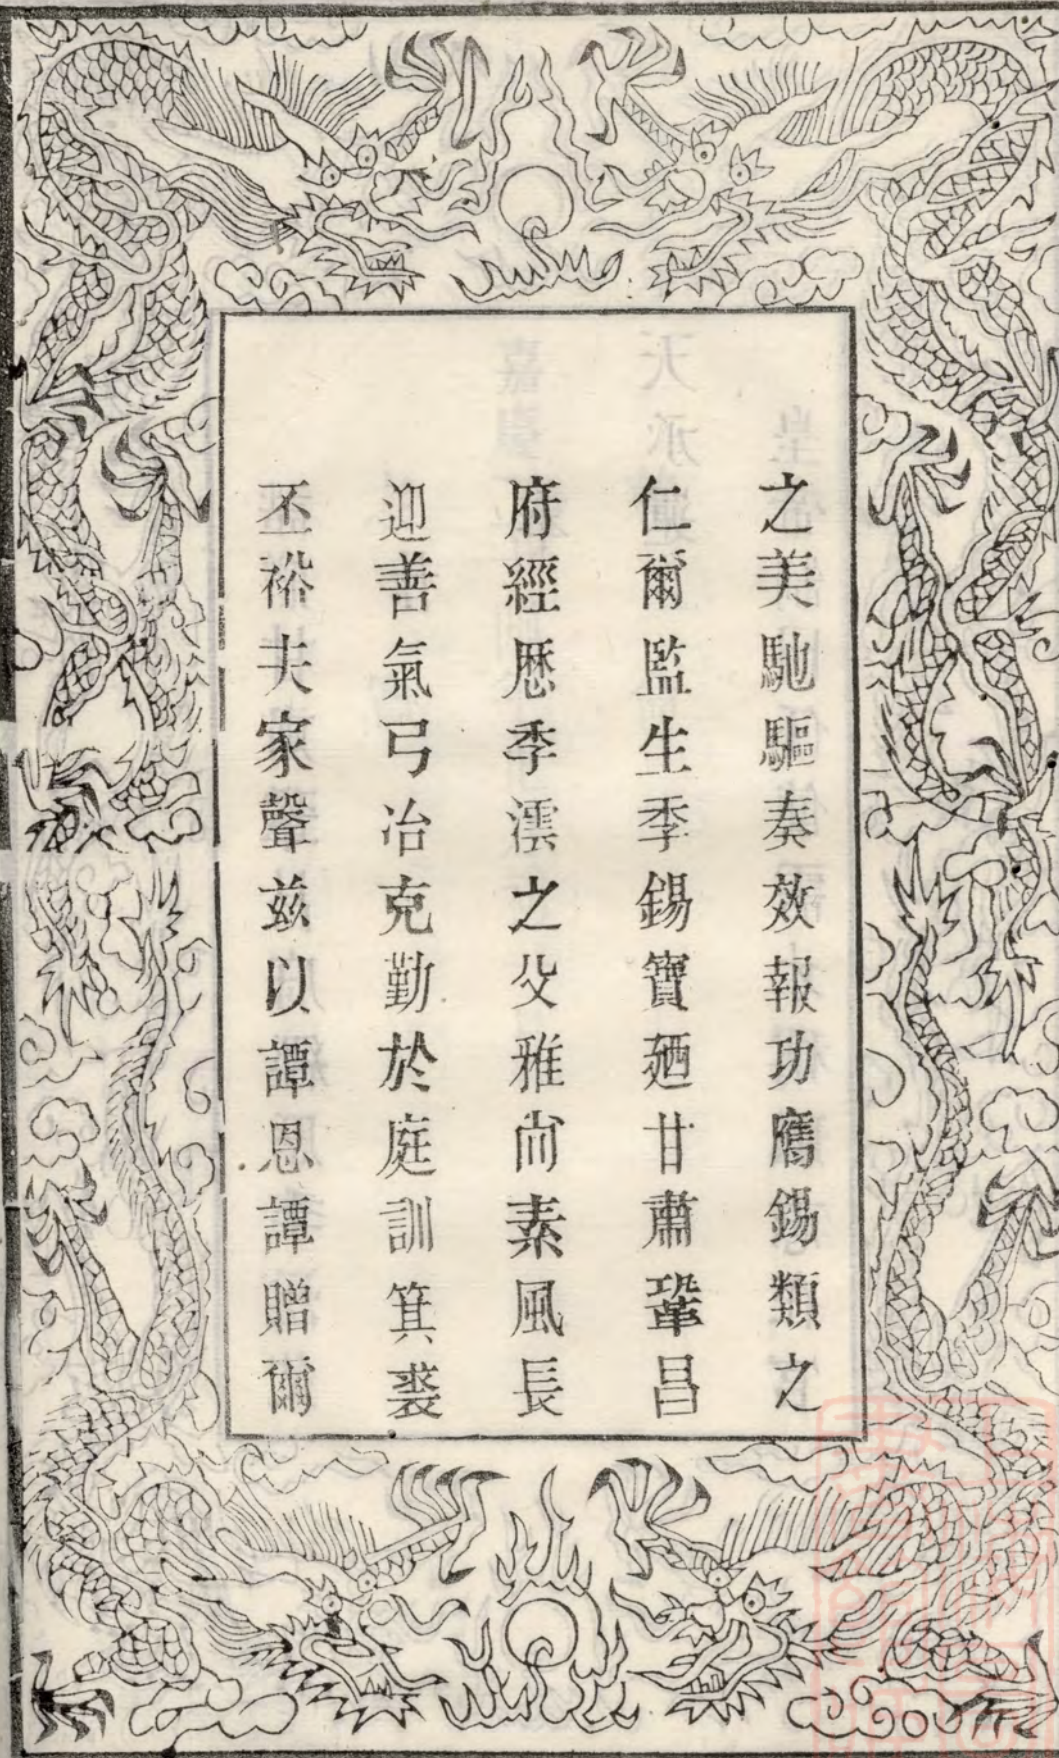 之美馳驅奏效報功膺錫類之
仁爾監生季錫寶廼甘肅鞏昌
府經歷季澐之父雅尚素風長
迎善氣弓冶克勤於庭訓箕裘
丕裕夫家聲兹以譚恩譚贈爾